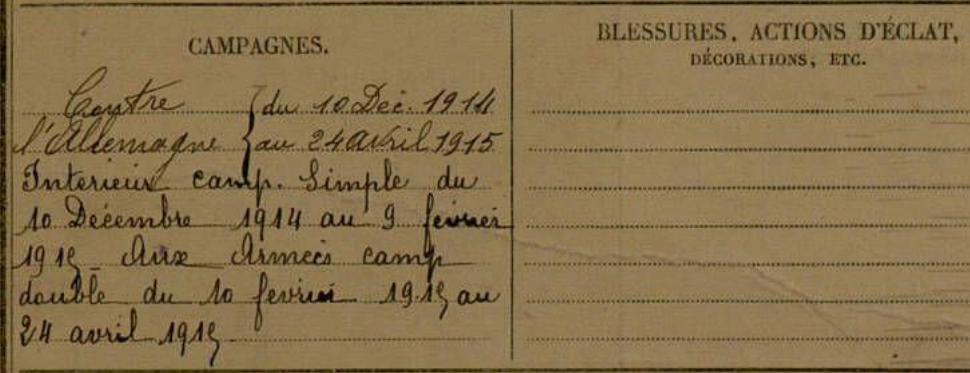 CAMPAGNES.
Contre { du 10 Déc. 1914
l'Allemagne { au 24 avril 1915
Interieur camp. Simple du
10 Décembre 1914 au 9 fevrier
1915 _ Aux Armées camp
double du 10 fevrier 1915 au
24 avril 1915
BLESSURES, ACTIONS D'ÉCLAT,
DÉCORATIONS, ETC.